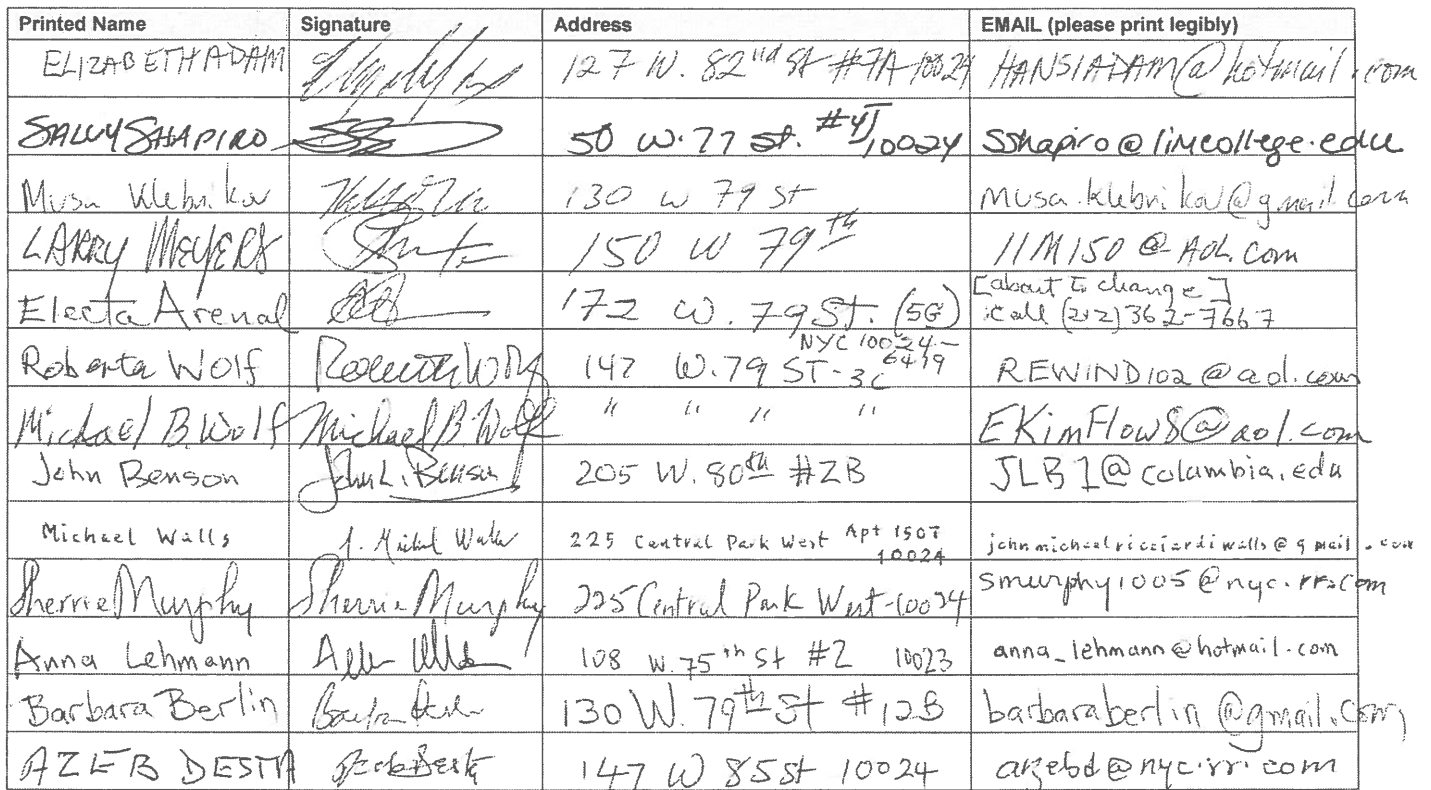 Printed Name Signature Address EMAIL (please print legibly)
ELIZABETH ADAM 127 W. 82nd St #7A 10024 HANSIADAM@hotmail.com
SALLY SHAPIRO 50 W. 77 St. #4J 10024 SShapiro@limcollege.edu
Musa Klebnikov 130 W 79 St musa.klebnikov@gmail.com
LARRY MEYERS 150 W 79th 11M150@AOL.com
Electa Arenal 172 W. 79 St. (5G) [about to change] call (212) 362-7667
Roberta Wolf Roberta Wolf 147 W. 79 ST-3C NYC 10024-6419 REWIND102@aol.com
Michael B. Wolf Michael B. Wolf " " " " EKimFlow8@aol.com
John Benson John L. Benson 205 W. 80th #2B JLB1@columbia.edu
Michael Walls J. Michael Walls 225 Central Park West Apt 1507 10024 johnmichaelricciardiwalls@gmail.com
Sherrie Murphy Sherrie Murphy 225 Central Park West-10024 smurphy1005@nyc.rr.com
Anna Lehmann 108 W. 75th St #2 10023 anna_lehmann@hotmail.com
Barbara Berlin Barbara Berlin 130 W. 79th St #12B barbaraberlin@gmail.com
AZEB DESTA Azeb Desta 147 W 85 St 10024 azebd@nyc.rr.com